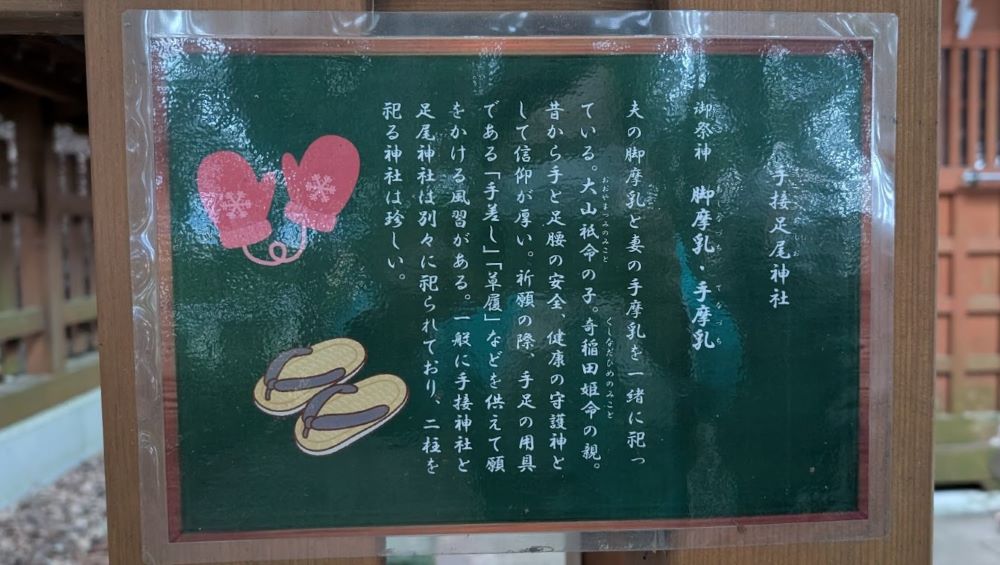 手接足尾神社
御祭神　脚摩乳・手摩乳
あしなづち　てなづち
夫の脚摩乳と妻の手摩乳を一緒に祀っ
ている。大山祇命の子。奇稲田姫命の親。
おおやまつみのみこと　くしなだひめのみこと
昔から手と足腰の安全、健康の守護神と
して信仰が厚い。祈願の際、手足の用具
である「手差し」「草履」などを供えて願
をかける風習がある。一般に手接神社と
足尾神社は別々に祀られており、二柱を
祀る神社は珍しい。